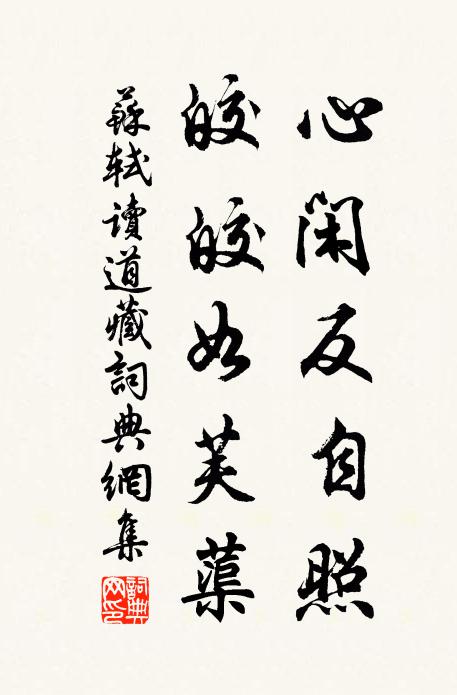 心閑反自照
皎皎如芙蕖
蘇軾讀道藏詞典網集
詞典網印